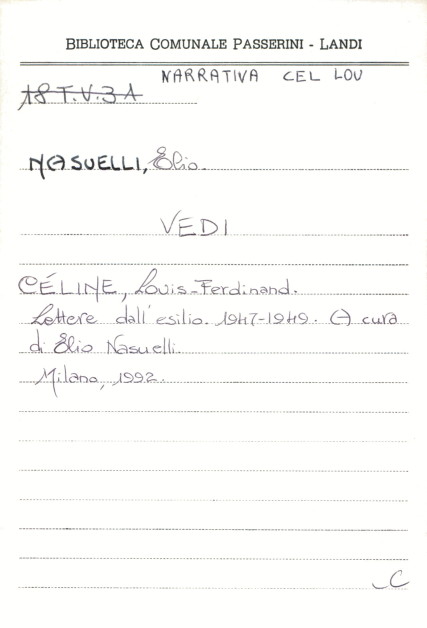 BIBLIOTECA COMUNALE PASSERINI - LANDI
NARRATIVA CEL LOU
18 T.V.31
NASUELLI, Elio.
VEDI
CÉLINE, Louis-Ferdinand.
Lettere dall'esilio. 1947-1949. A cura
di Elio Nasuelli.
Milano, 1992.
C